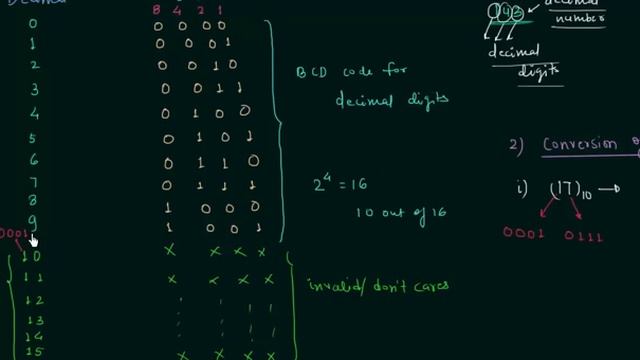 Decimal
8 4 2 1
0 0 0 0 0
1 0 0 0 1
2 0 0 1 0
3 0 0 1 1
4 0 1 0 0
5 0 1 0 1
6 0 1 1 0
7 0 1 1 1
8 1 0 0 0
9 1 0 0 1
0001
10 x x x x
11 x x x x
12
13
14
15 x x x x
BCD code for
decimal digits
2^4 = 16
10 out of 16
invalid/don't cares
decimal
number
decimal
digits
2) Conversion
i) (17)10 →
0001 0111